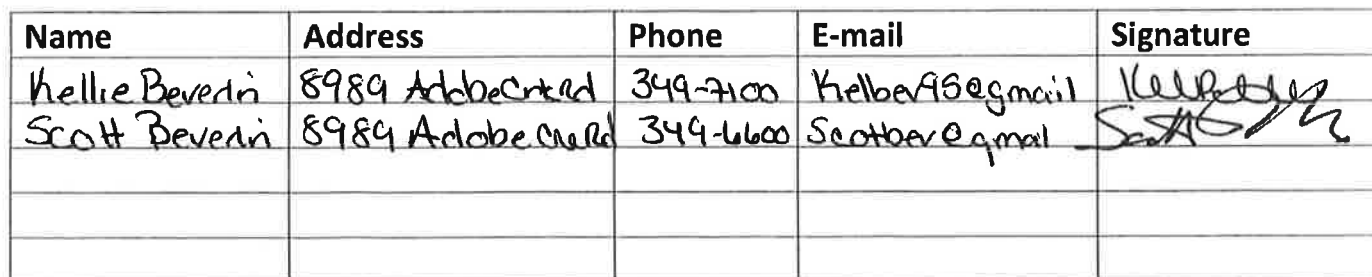 Name Address Phone E-mail Signature
Kellie Beverin 8989 Adobe Crk Rd 349-7100 Kelber95@gmail
Scott Beverin 8989 Adobe Rd 349-6600 Scotber@gmail Scott